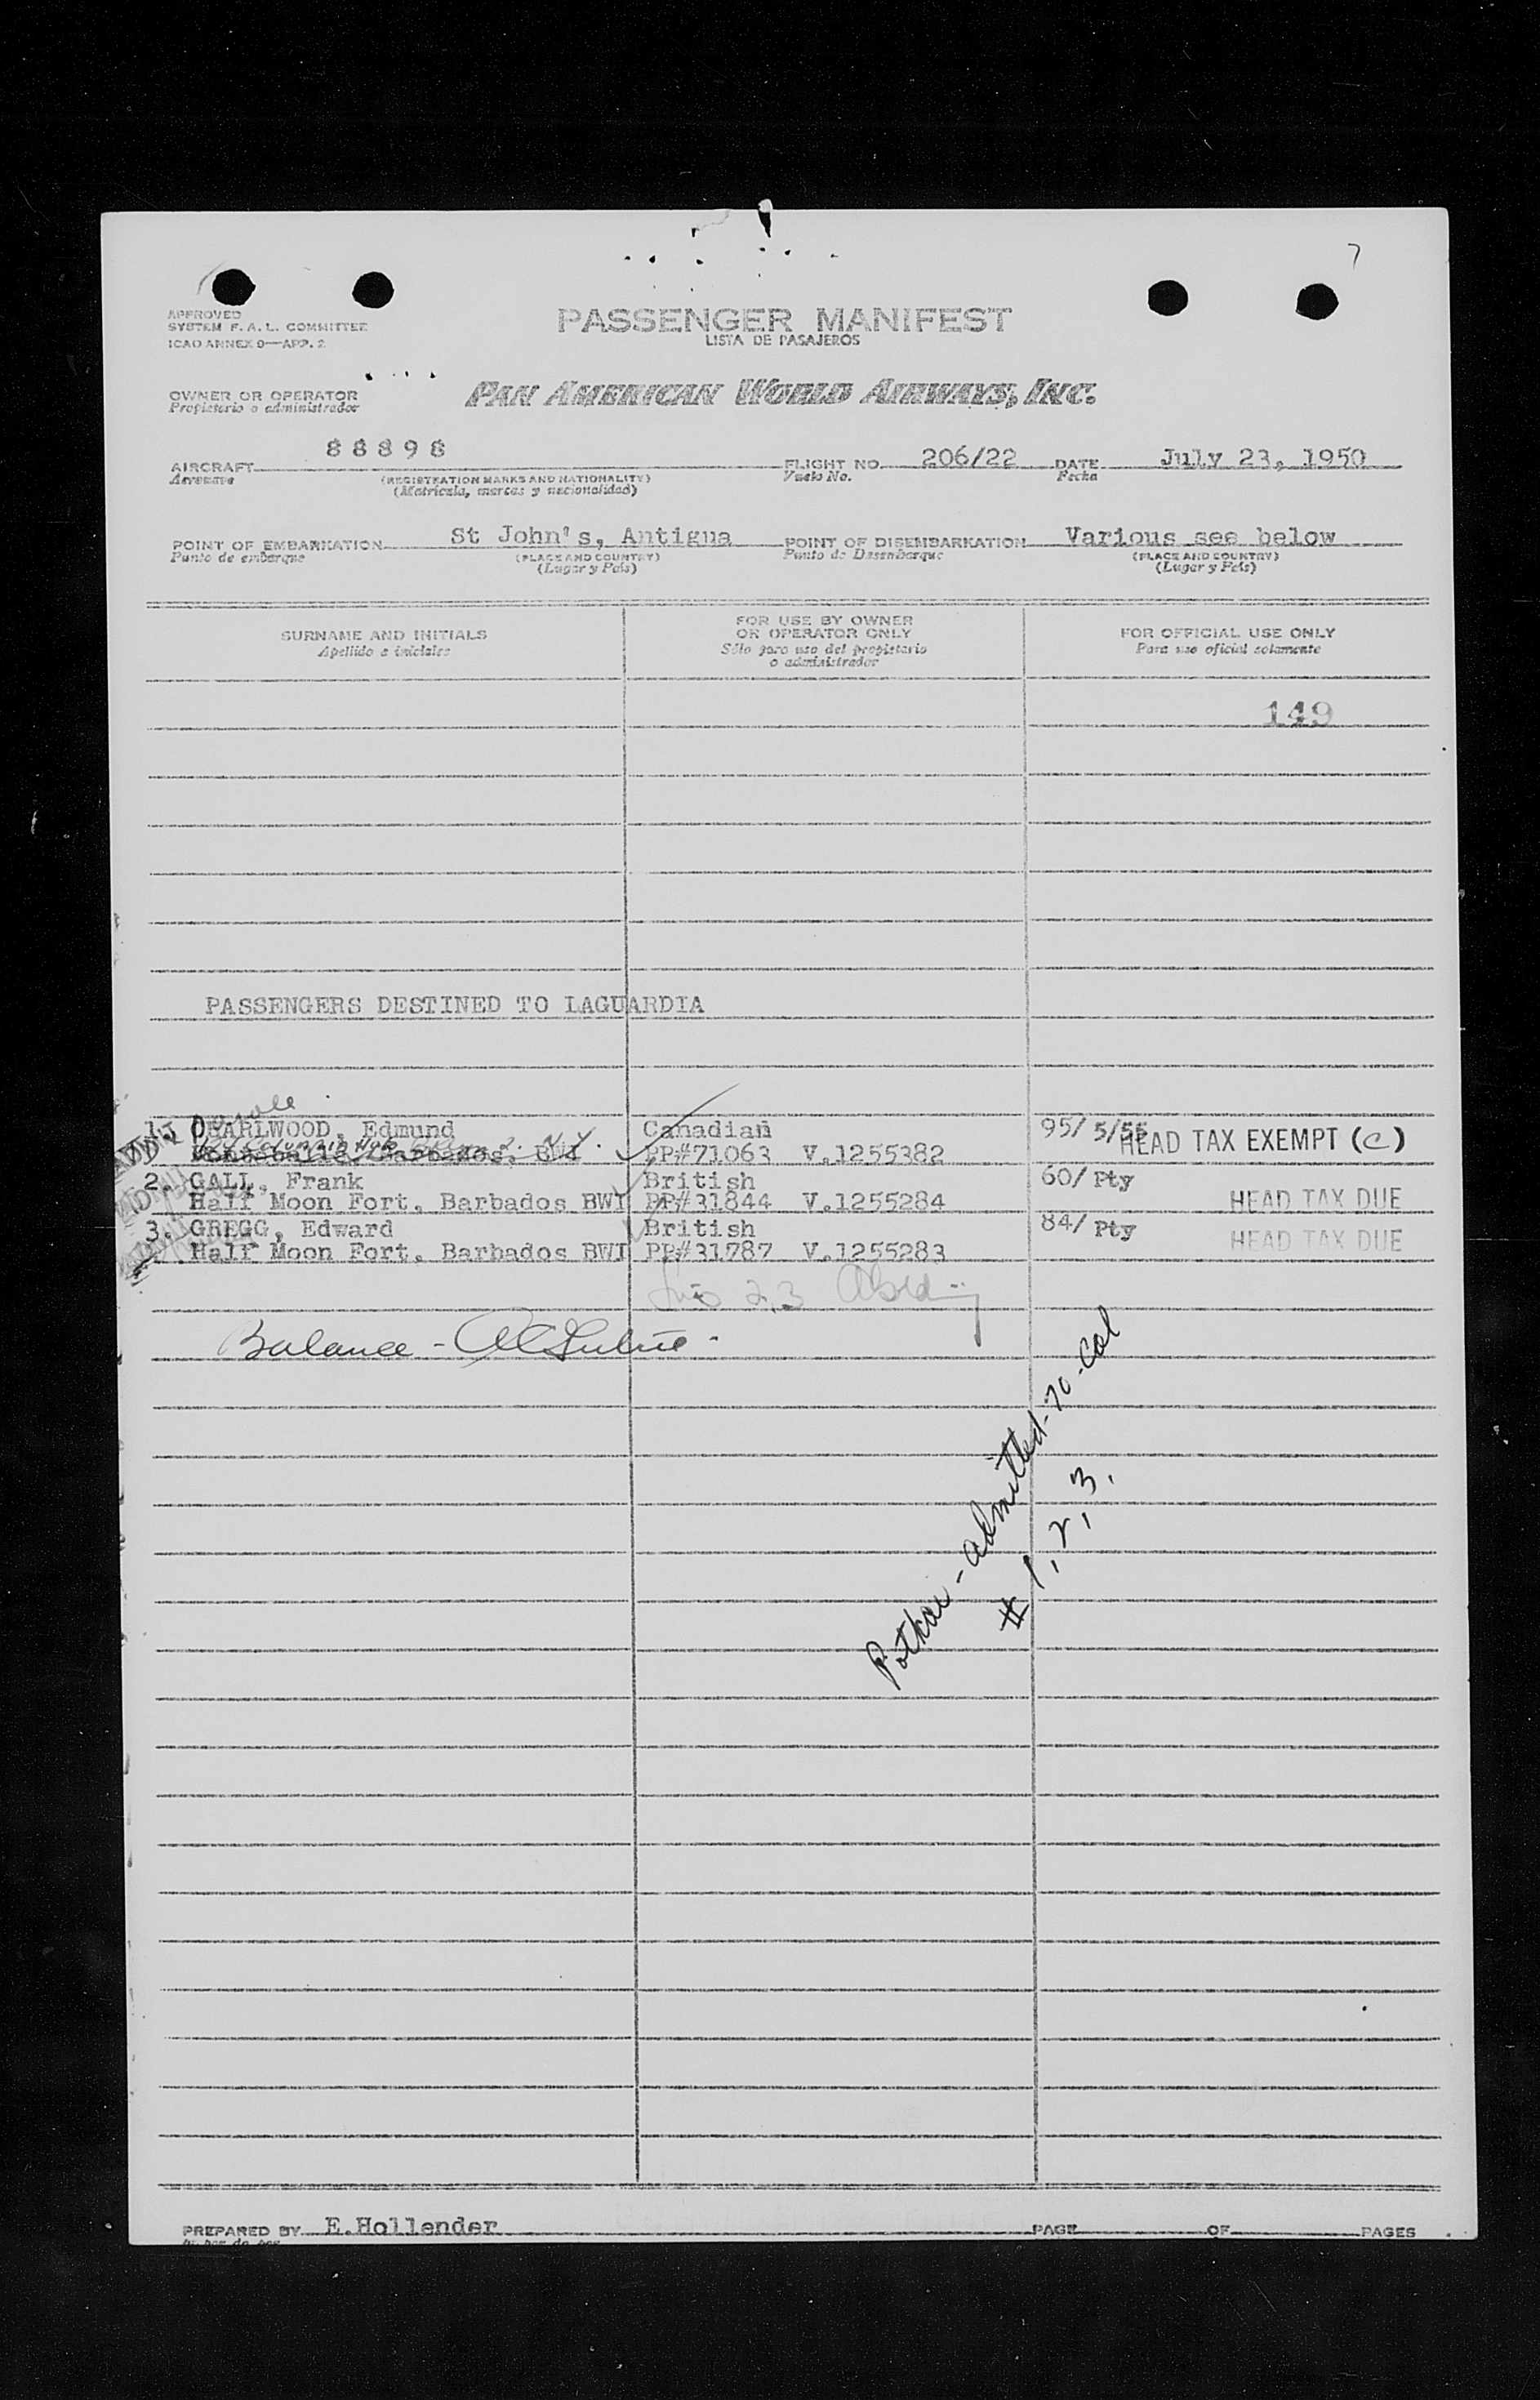 7
APPROVED
SYSTEM F. A. L. COMMITTEE
ICAO ANNEX 9—APP. 2
PASSENGER MANIFEST
LISTA DE PASAJEROS
OWNER OR OPERATOR
Propietario o administrador
PAN AMERICAN WORLD AIRWAYS, INC.
AIRCRAFT 88898 FLIGHT NO. 206/22 DATE July 23, 1950
Aeronave (REGISTRATION MARKS AND NATIONALITY) Vuelo No. Fecha
(Matricula, marcas y nacionalidad)
POINT OF EMBARKATION St John's, Antigua POINT OF DISEMBARKATION Various see below
Punto de embarque (PLACE AND COUNTRY) Punto de Desembarque (PLACE AND COUNTRY)
(Lugar y País) (Lugar y País)
SURNAME AND INITIALS FOR USE BY OWNER OR OPERATOR ONLY FOR OFFICIAL USE ONLY
Apellido e iniciales Sólo para uso del propietario o administrador Para uso oficial solamente
149
PASSENGERS DESTINED TO LAGUARDIA
1. PEARLWOOD, Edmund Canadian 95/ 5/55 HEAD TAX EXEMPT (C)
Barbados, BWI PP#71063 V.1255382
2. GALL, Frank British 60/ Pty
Half Moon Fort, Barbados BWI PP#31844 V.1255284 HEAD TAX DUE
3. GREGG, Edward British 84/ Pty
Half Moon Fort, Barbados BWI PP#31787 V.1255283 HEAD TAX DUE
2,3
Balance -
admitted - to -
# 1, 2, 3.
PREPARED BY E.Hollender PAGE OF PAGES